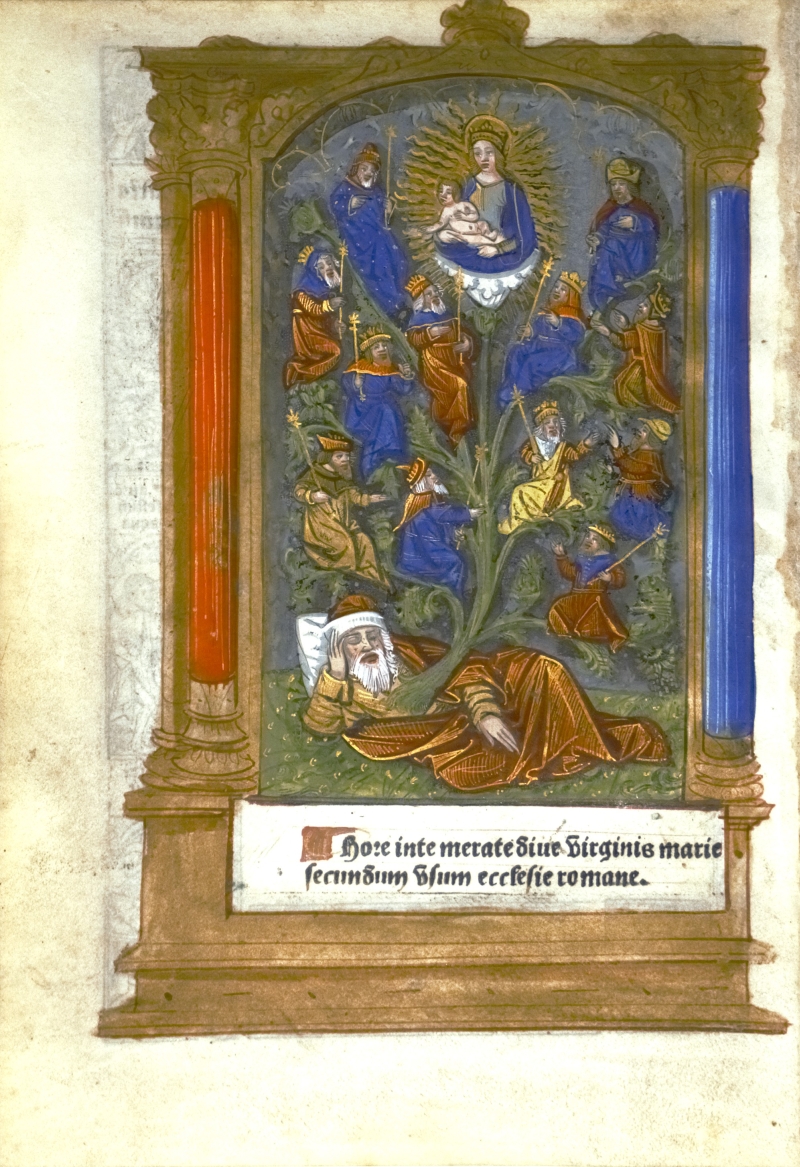 Hore inte merate diue Virginis marie
secundum Vsum ecclesie romane.